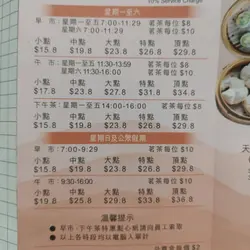 10% Service Charge
星期一至六
早市：星期一至五7:00-11:29 茗茶每位$8
星期六7:00-11:29 茗茶每位$10
小點 中點 大點 特點 頂點
$15.8 $19.8 $23.8 $26.8 $29.8
午市：星期一至五11:30-13:59 茗茶每位$10
星期六11:30-16:00
小點 中點 大點 特點 頂點
$19.8 $23.8 $28.8 $33.8 $36.8
下午茶：星期一至五14:00-16:00 茗茶每位$8
小點 中點 大點 特點 頂點
$15.8 $19.8 $23.8 $26.8 $29.8
星期日及公眾假期
早市：7:00-9:29 茗茶每位$10
小點 中點 大點 特點 頂點
$15.8 $19.8 $23.8 $26.8 $29.8
午市：9:30-16:00 茗茶每位$10
小點 中點 大點 特點 頂點
$19.8 $23.8 $28.8 $33.8 $36.8
溫馨提示
早市、下午茶特惠點心紙請向員工索取
以上各時段均以電腦入單計
天